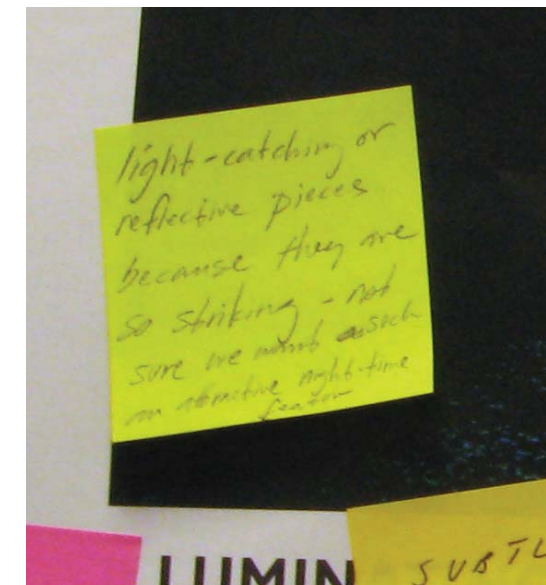 light-catching or
reflective pieces
because they are
so striking - not
sure we want such
an attractive night-time
feature
LUMIN
SUBTL